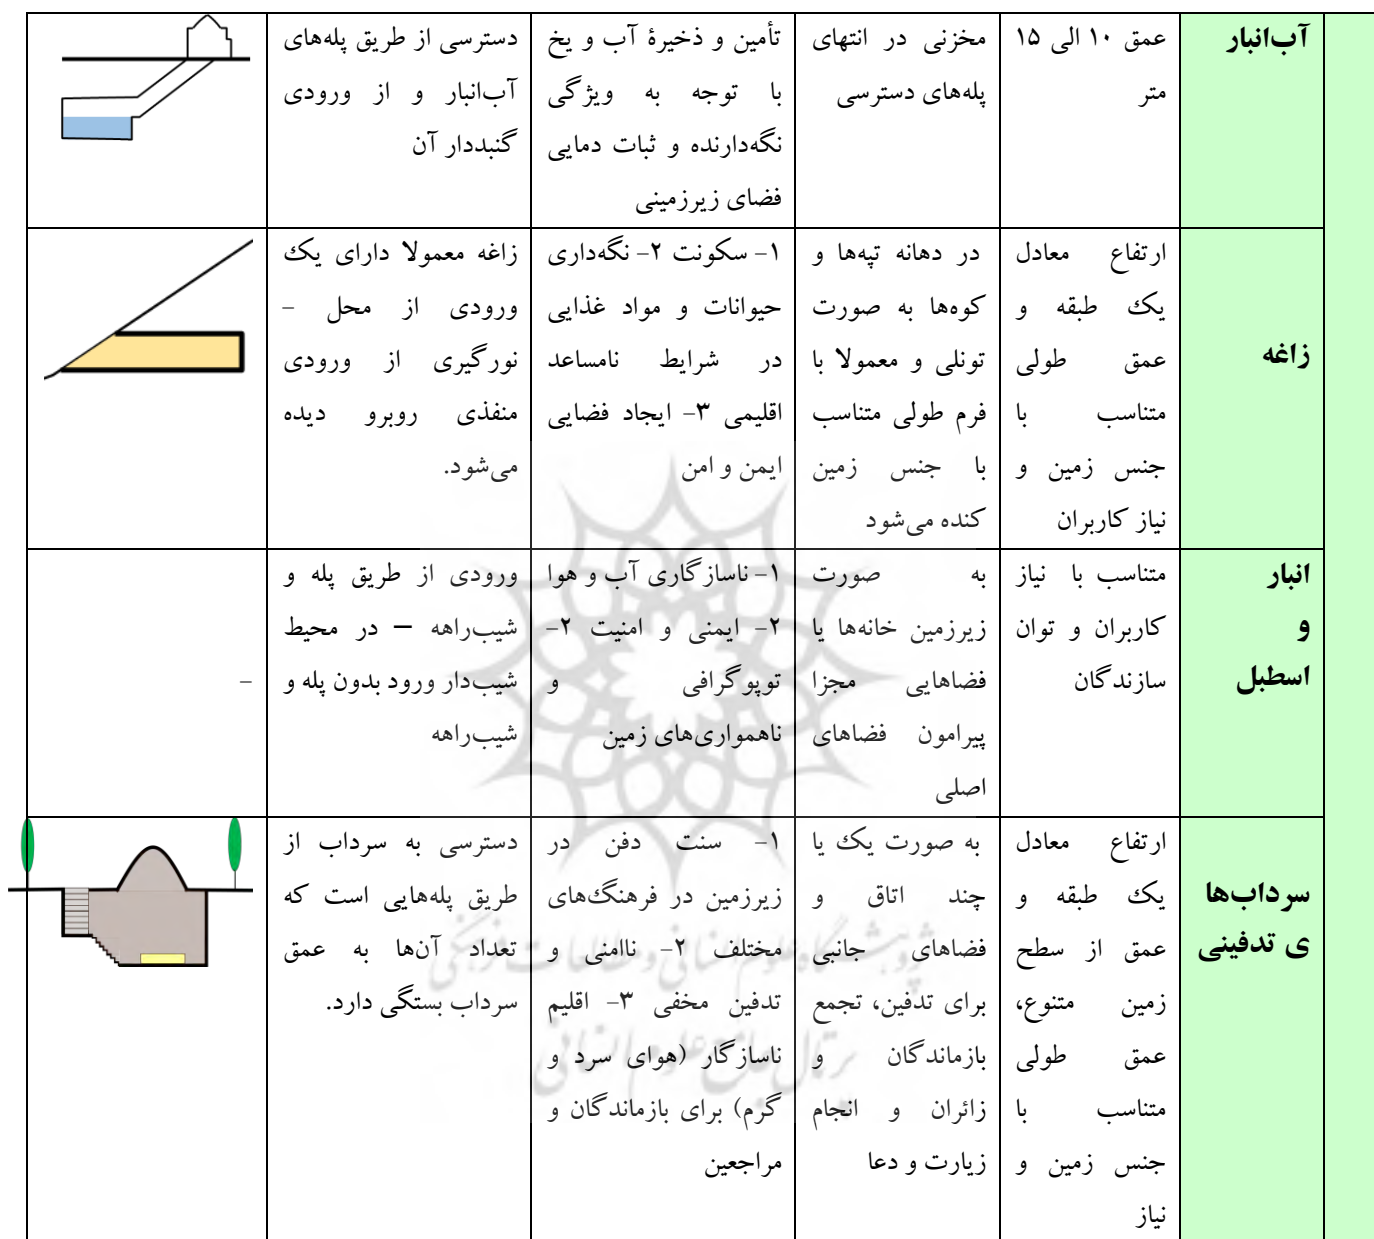 آب‌انبار
عمق ۱۰ الی ۱۵
متر
مخزنی در انتهای
پله‌های دسترسی
تأمین و ذخیرهٔ آب و یخ
با توجه به ویژگی
نگه‌دارنده و ثبات دمایی
فضای زیرزمینی
دسترسی از طریق پله‌های
آب‌انبار و از ورودی
گنبددار آن
زاغه
ارتفاع معادل
یک طبقه و
عمق طولی
متناسب با
جنس زمین و
نیاز کاربران
در دهانه تپه‌ها و
کوه‌ها به صورت
تونلی و معمولا با
فرم طولی متناسب
با جنس زمین
کنده می‌شود
۱- سکونت ۲- نگه‌داری
حیوانات و مواد غذایی
در شرایط نامساعد
اقلیمی ۳- ایجاد فضایی
ایمن و امن
زاغه معمولا دارای یک
ورودی از محل -
نورگیری از ورودی
منفذی روبرو دیده
می‌شود.
انبار
و
اسطبل
متناسب با نیاز
کاربران و توان
سازندگان
به صورت
زیرزمین خانه‌ها یا
فضاهایی مجزا
پیرامون فضاهای
اصلی
۱- ناسازگاری آب و هوا
۲- ایمنی و امنیت ۲-
توپوگرافی و
ناهمواری‌های زمین
ورودی از طریق پله و
شیب‌راهه – در محیط
شیب‌دار ورود بدون پله و
شیب‌راهه
-
سرداب‌ها
ی تدفینی
ارتفاع معادل
یک طبقه و
عمق از سطح
زمین متنوع،
عمق طولی
متناسب با
جنس زمین و
نیاز
به صورت یک یا
چند اتاق و
فضاهای جانبی
برای تدفین، تجمع
بازماندگان و
زائران و انجام
زیارت و دعا
۱- سنت دفن در
زیرزمین در فرهنگ‌های
مختلف ۲- ناامنی و
تدفین مخفی ۳- اقلیم
ناسازگار (هوای سرد و
گرم) برای بازماندگان و
مراجعین
دسترسی به سرداب از
طریق پله‌هایی است که
تعداد آن‌ها به عمق
سرداب بستگی دارد.
پژوهشگاه علوم انسانی و مطالعات فرهنگی
پرتال جامع علوم انسانی